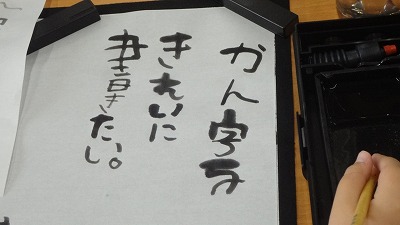 かん字を
きれいに
書きたい。